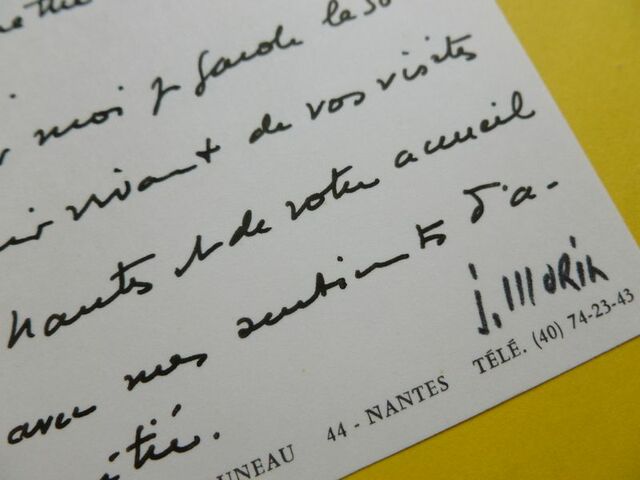 moi je garde le so
vivant de vos visites
Nantes et de votre accueil
avec mes sentiments d'a-
itié.
J. MORIN
UNEAU 44 - NANTES TÉLÉ. (40) 74-23-43